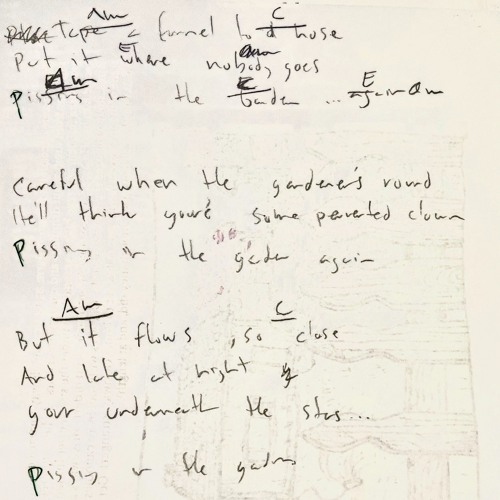 Am C
tape a funnel to a hose
E Am
Put it where nobody goes
Am E E
Pissing in the Garden ... again Am
Careful when the gardener's round
He'll think you're some perverted clown
Pissing in the garden again
Am C
But it flows , so close
And late at night
your underneath the stars...
Pissing in the gardens